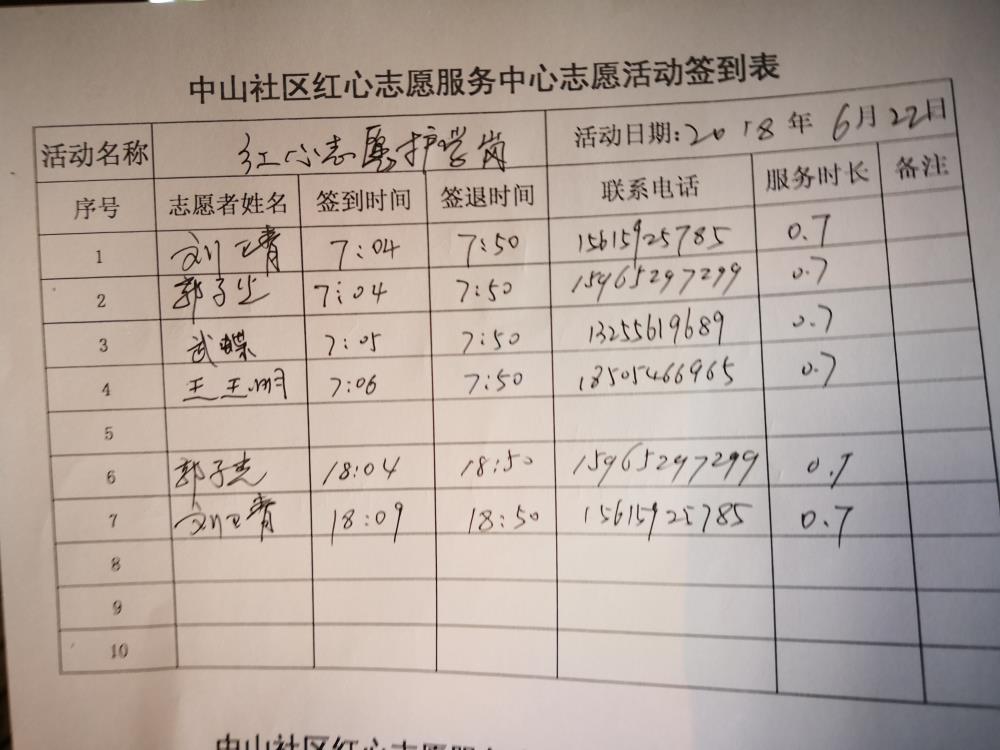 中山社区红心志愿服务中心志愿活动签到表
活动名称 红心志愿护学岗 活动日期:2018年6月22日
序号 志愿者姓名 签到时间 签退时间 联系电话 服务时长 备注
1 刘 青 7:04 7:50 15615925785 0.7
2 郭子 7:04 7:50 15965297299 0.7
3 武蝶 7:05 7:50 13255619689 0.7
4 王玉明 7:06 7:50 18505466965 0.7
5
6 郭子 18:04 18:50 15965297299 0.7
7 刘 青 18:09 18:50 15615925785 0.7
8
9
10
中山社区红心志愿服